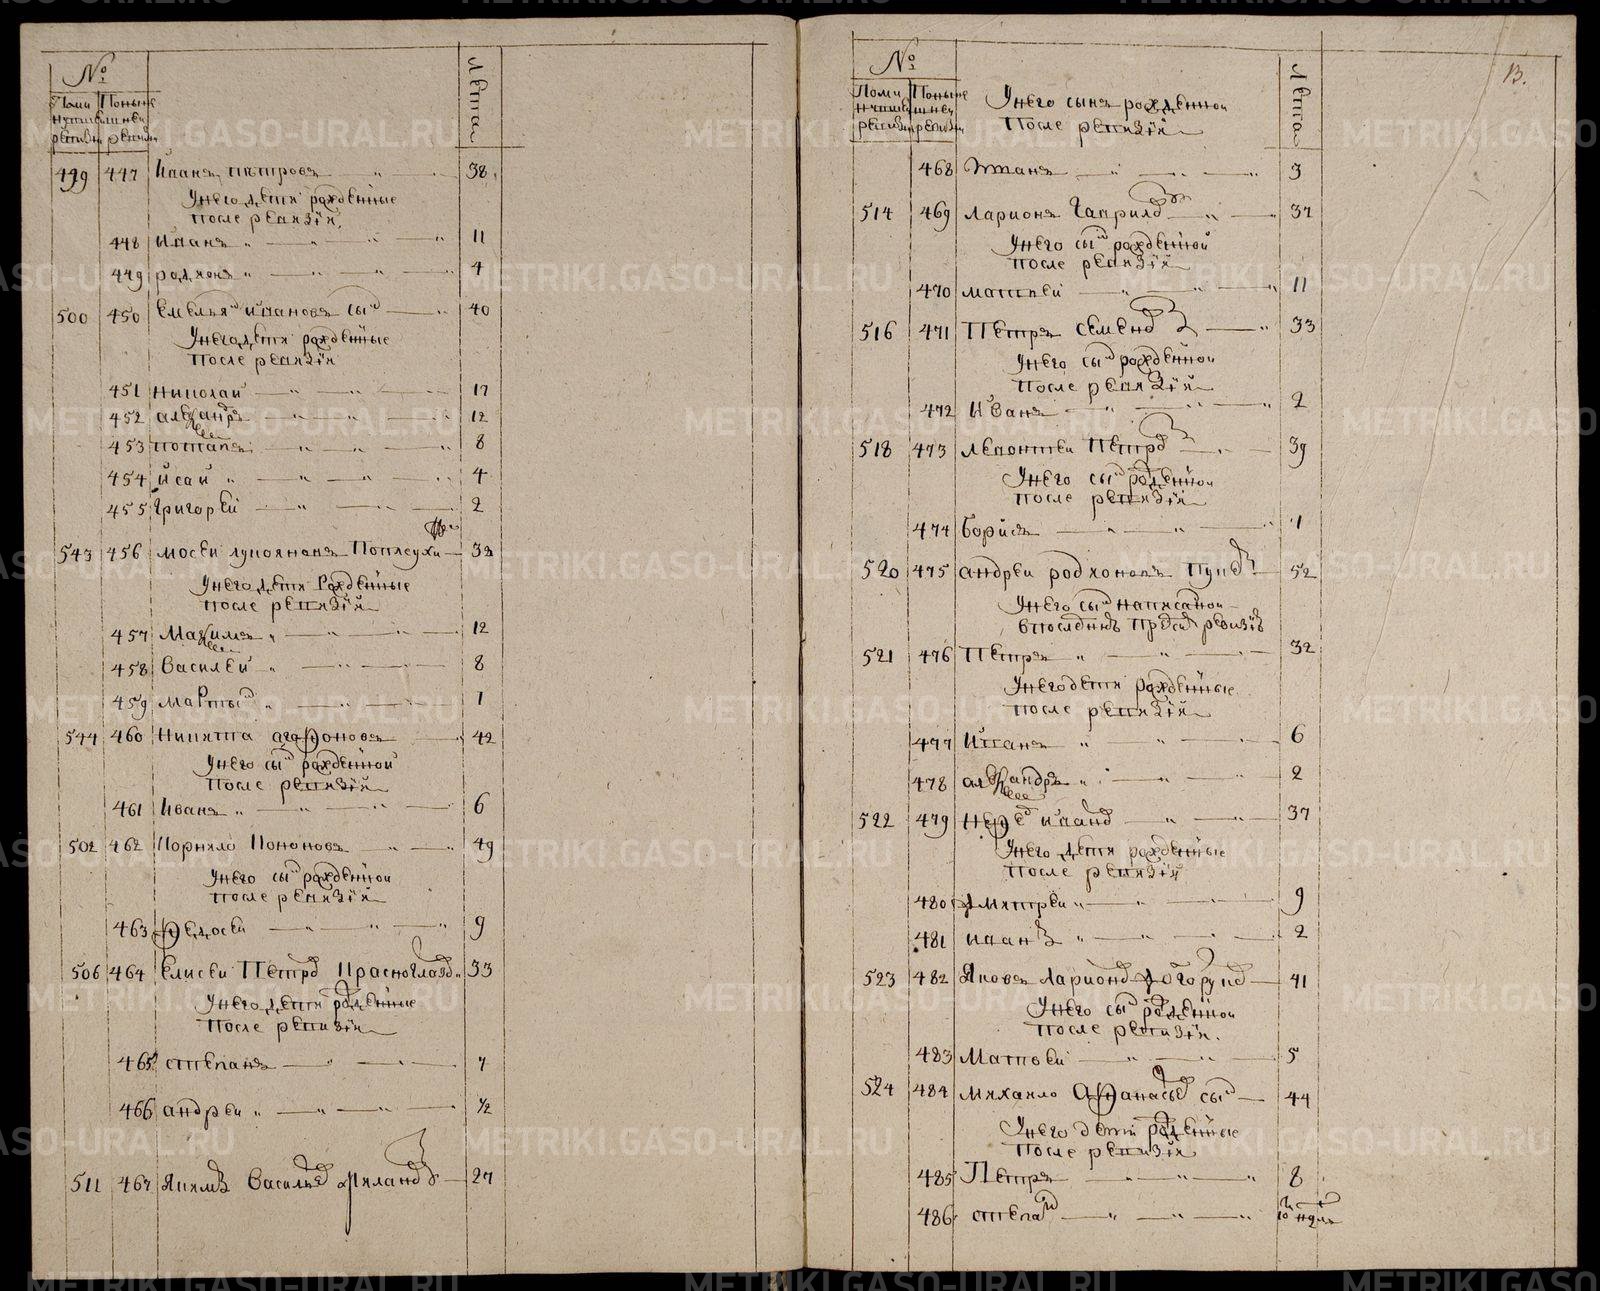 №
Лѣта
499 447 Иванъ Петровъ 38
У него дети рожденные
после ревизiи.
448 Иванъ 11
449 родионъ 4
500 450 Емельян Ивановъ сын 40
У него дети рожденные
после ревизiи
451 Николай 17
452 александръ 12
453 потапъ 8
454 Исай 4
455 Григореи 2
543 456 Мосеи 32
У него дети Рожденные
после ревизiи
457 Максимъ 12
458 Василеи 8
459 Мартын 1
544 460 Никита агафоновъ 42
У него сын рожденной
После ревизiи
461 Иванъ 6
502 462 Корнило Кононовъ 49
У него сын рожденнои
После ревизiи
463 Федосеи 9
506 464 Елисеи Петров Красноглазов 53
У него дети рожденные
После ревизiи
465 степанъ 7
466 андреи 1/2
511 467 Якимъ Васильев 27
№
Лѣта
13.
У него сынъ рожденнои
После ревизiи
468 Иванъ 3
514 469 Ларионъ Гаврилов 37
У него сын рожденной
после ревизiи
470 матвеи 11
516 471 Петръ семенов 33
У него сын рожденнои
после ревизiи
472 Иванъ 2
518 473 Левонтеи Петров 39
У него сын рожденнои
после ревизiи
474 Борисъ 1
520 475 андреи родионовъ 52
У него сын написанои
в последнюю пред сим ревизию
521 476 Петръ 32
У него дети рожденные
после ревизiи
477 Иванъ 6
478 александръ 2
522 479 Нефед иванов 37
У него дети рожденные
После ревизiи
480 Дмитреи 9
481 иванъ 2
523 482 Яковъ Ларионов 41
У него сын рожденной
После ревизiи.
483 Матвеи 5
524 484 Михаило Афанасьев сын 44
У него дети рожденные
После ревизiи
485 Петръ 8
486 степан 10
METRIKI.GASO-URAL.RU